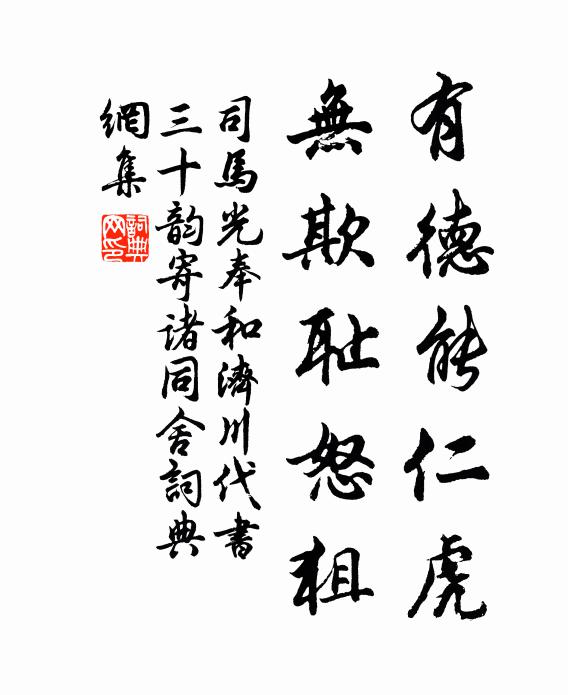 有德能仁虎
無欺耻怒狙
司馬光奉和濟川代書
三十韵寄诸同舍詞典
網集
詞典
网印